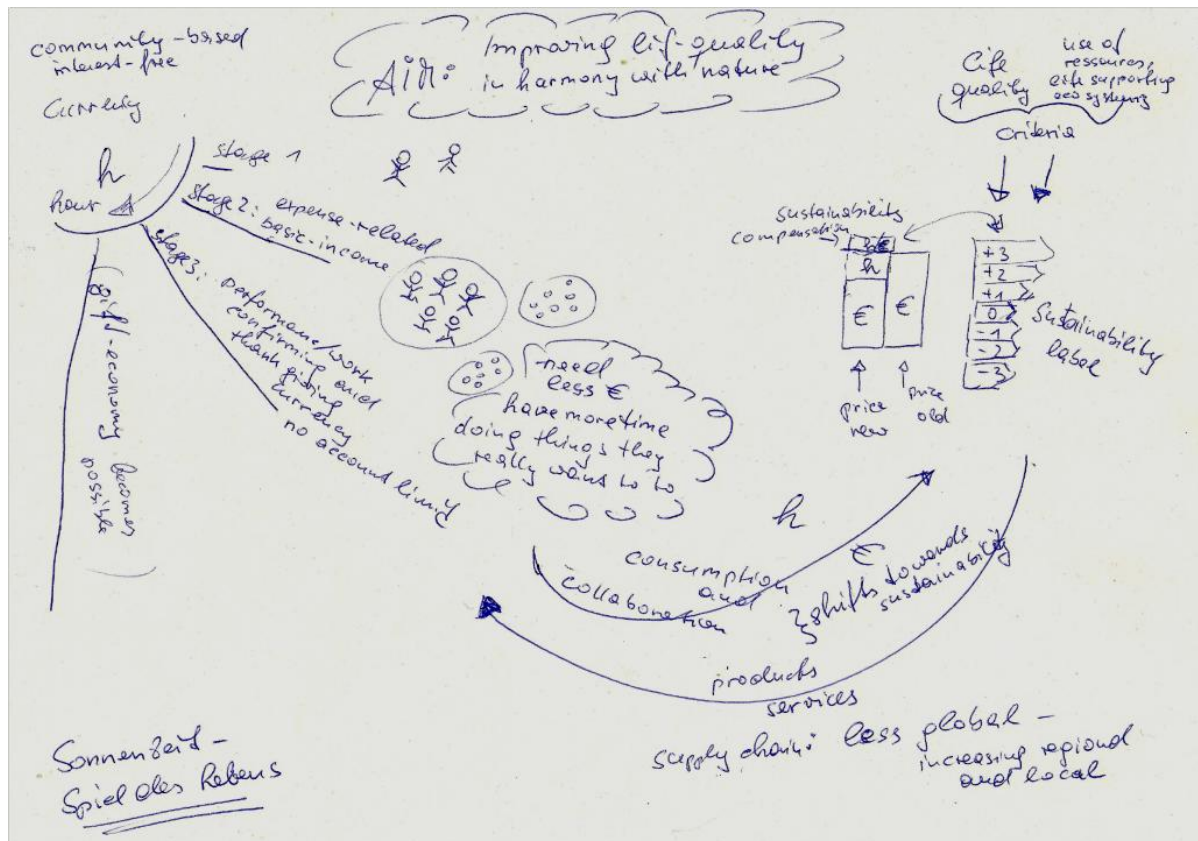 community-based
interest-free
Currency
AIM:
Improving lif-quality
in harmony with nature
Life
quality
use of
ressources,
life supporting
eco systems
criteria
h
hour
stage 1
stage 2: expense-related
basic-income
stage 3: performance/work
confirming and
thankgiving
currency
no account limit
(gift-economy becomes
possible)
need
less €
have more time
doing things they
really want to to
sustainability
compensation
h
€
€
price
new
price
old
+3
+2
+1
0
-1
-2
-3
sustainability
label
h
€
consumption
and
collaboration
shifts towards
sustainability
products
services
supply chain: less global -
increasing regional
and local
Sonnenzeit -
Spiel des Lebens